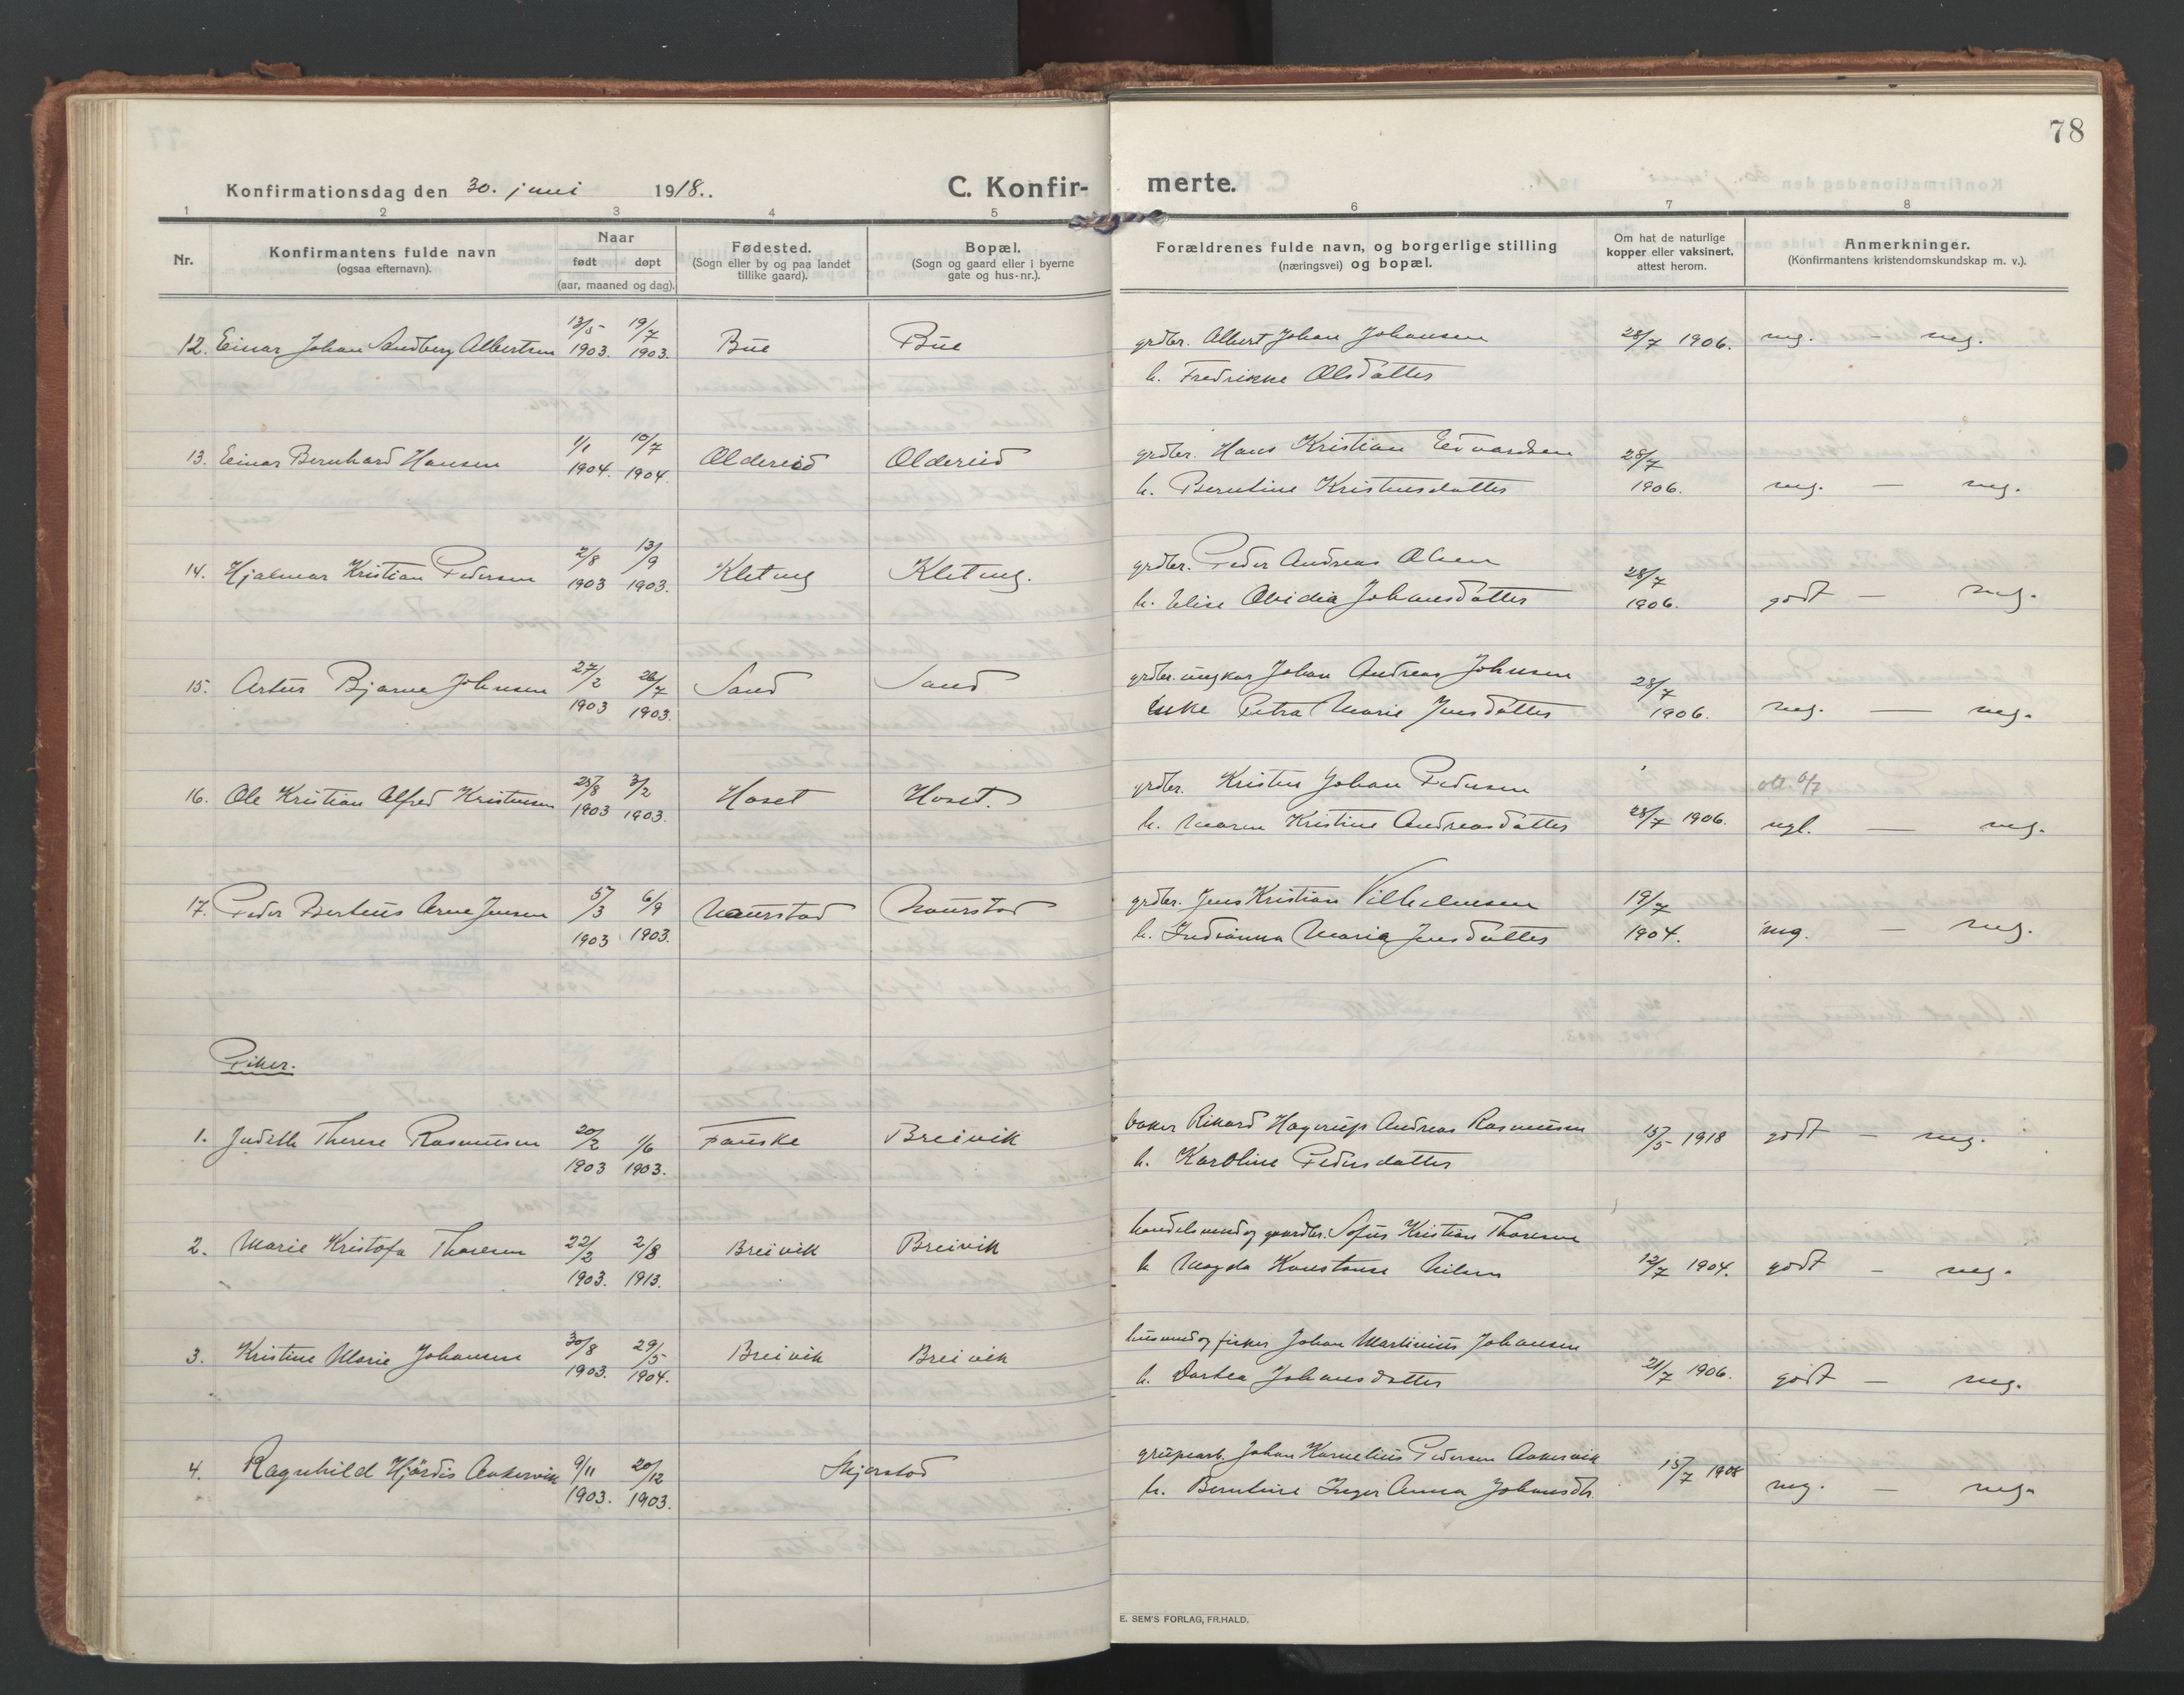 78
Konfirmationsdag den 30. juni 1918.
C. Konfirmerte.
1 2 3 4 5 6 7 8
Nr.
Konfirmantens fulde navn
(ogsaa efternavn).
Naar
født døpt
(aar, maaned og dag).
Fødested.
(Sogn eller by og paa landet
tillike gaard).
Bopæl.
(Sogn og gaard eller i byerne
gate og hus-nr.).
Forældrenes fulde navn, og borgerlige stilling
(næringsvei) og bopæl.
Om hat de naturlige
kopper eller vaksinert,
attest herom.
Anmerkninger.
(Konfirmantens kristendomskundskap m. v.).
13/5 19/7
12. Einar Johan Sandberg Albertsen 1903. 1903. Bue Bue grdbr. Albert Johan Johansen 28/7 1906. mg. - mg.
h. Fredrikke Olsdatter
1/1 10/7
13. Einar Bernhard Hansen 1904. 1904. Oldereid Oldereid grdbr. Hans Kristian Edvardsen 28/7
h. Berntine Kristensdatter 1906. mg. - mg.
2/8 13/9
14. Hjalmar Kristian Pedersen 1903 1903. Kletung Kletung. grdbr. Peder Andreas Olsen 28/7
h. Elise Obidia Johansdatter 1906. godt - mg.
27/2 26/7
15. Artur Bjarne Johnsen 1903 1903. Sand Sand grdbr. ungkar Johan Andreas Johnsen 28/7
enke Petra Marie Jensdatter 1906. mg. - mg.
28/8 3/2
16. Ole Kristian Alfred Kristensen 1903 1903. Hoset Hoset. grdbr. Kristen Johan Pedersen
h. Maren Kristine Andreasdatter 28/7 1906. mgl. - mg.
5/3 6/9
17. Peder Berteus Arne Jensen 1903 1903. Naurstad Naurstad grdbr. Jens Kristian Vilhelmsen 19/7
h. Indianna Maria Jensdatter 1904. mg. - mg.
Piker.
20/2 1/6
1. Judith Therese Rasmussen 1903 1903. Fauske Breivik baker Rikard Hagerup Andreas Rasmussen 15/5 1918 godt - mg.
h. Karoline Pedersdatter
22/2 2/8
2. Marie Kristofa Thoresen 1903. 1913. Breivik Breivik handelsmand og gaardbr. Sofus Kristian Thoresen
h. Magda Konstanse Nilsen 12/7 1904. godt - mg.
30/8 29/5
3. Kristine Marie Johansen 1903. 1904. Breivik Breivik husmand og fisker Johan Martinius Johansen
h. Dortea Johansdatter 21/7 1906. godt - mg.
9/11 20/12
4. Ragnhild Hjördis Aakervik 1903. 1903. Skjerstad grubearb. Johan Kornelius Pedersen Aakervik 15/7 1908
h. Berntine Inger Anna Johansdtr. mg. - mg.
E. SEM'S FORLAG, FR.HALD.